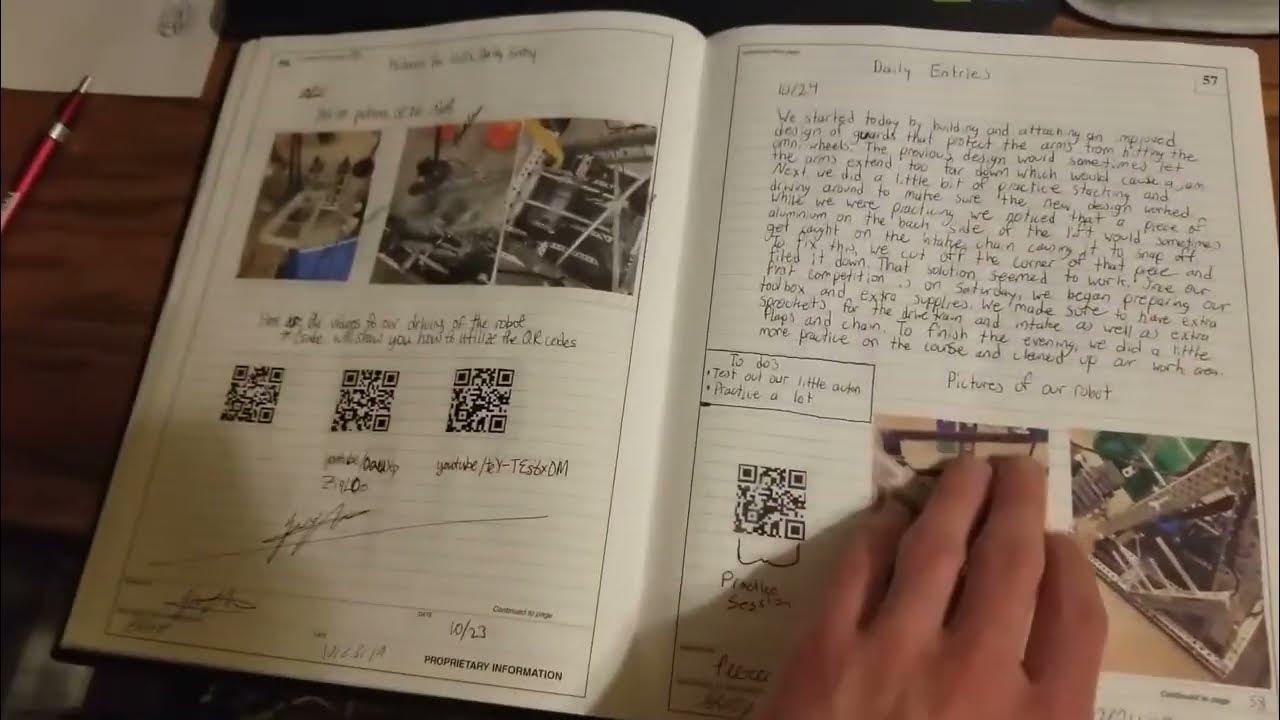 Pictures for Daily Entry
Here are the videos of our driving of the robot
will show you how to utilize the QR codes
youtube/
youtube/teY-TEs6xDM
Continued to page
DATE
10/23
DATE
PROPRIETARY INFORMATION
57
Daily Entries
10/24
We started today by building and attaching an improved
design of guards that protect the arms from hitting the
omni wheels. The previous design would sometimes let
the arms extend too far down which would cause a jam.
Next we did a little bit of practice stacking and
driving around to make sure the new design worked.
While we were practicing we noticed that a piece of
aluminum on the back side of the lift would sometimes
get caught on the intake chain causing it to snap off.
To fix this, we cut off the corner of that piece and
filed it down. That solution seemed to work. Since our
first competition is on Saturday, we began preparing our
toolbox and extra supplies. We made sure to have extra
sprockets for the drive train and intake as well as extra
flaps and chain. To finish the evening, we did a little
more practice on the course and cleaned up our work area.
To dos
• Test out our little auton
• Practice a lot
Pictures of our robot
Practice
Session
Continued to page
58